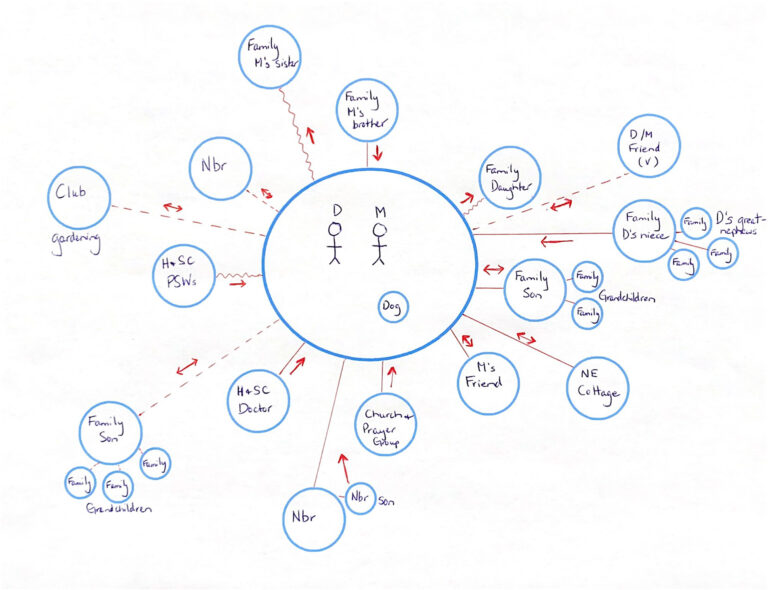 Family
M's sister
Family
M's
brother
D/M
Friend
(V)
Nbr
Family
Daughter
Club
gardening
D
M
Family
D's niece
Family
Family
Family
D's great-
nephews
H+SC
PSWs
Family
Son
Family
Family
Grandchildren
Dog
M's
Friend
NE
Cottage
H+SC
Doctor
Church +
Prayer
Group
Family
Son
Family
Family
Family
Grandchildren
Nbr
Nbr
Son